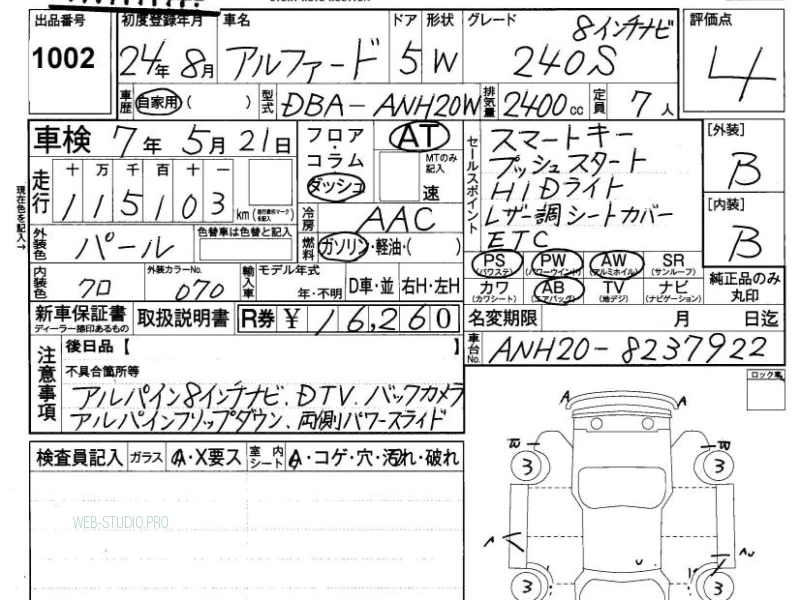 出品番号 初度登録年月 車名 ドア 形状 グレード 評価点
1002 24年 8月 アルファード 5 W 8インチナビ 240S 4
車歴 自家用 ( ) 型式 DBA-ANH20W 排気量 2400cc 定員 7人
車検 7年 5月 21日 フロア・コラム ダッシュ AT MTのみ記入 速
セールスポイント スマートキー
プッシュスタート
HIDライト
レザー調シートカバー
ETC
[外装] B
[内装] B
現在色を記入→
走行 十 万 千 百 十 一
115103 km
冷房 AAC
外装色 パール 色替車は色替と記入 燃料 ガソリン・軽油・( )
内装色 クロ 外装カラーNo. 070 輸入車 モデル年式 年・不明 D車・並 右H・左H
PS (パワステ) PW (パワーウインド) AW (アルミホイル) SR (サンルーフ)
カワ (カワシート) AB (エアバッグ) TV (地デジ) ナビ (ナビゲーション)
純正品のみ丸印
新車保証書 ディーラー捺印あるもの 取扱説明書 R券 ¥ 16,260 名変期限 月 日迄
車台No. ANH20-8237922
注意事項 後日品【 】
不具合箇所等
アルパイン8インチナビ、DTV、バックカメラ
アルパインフリップダウン、両側パワースライド
ロック無
検査員記入 ガラス A・X要ス 室内シート A・コゲ・穴・汚れ・破れ
A A
3 3
3 3
WEB-STUDIO.PRO